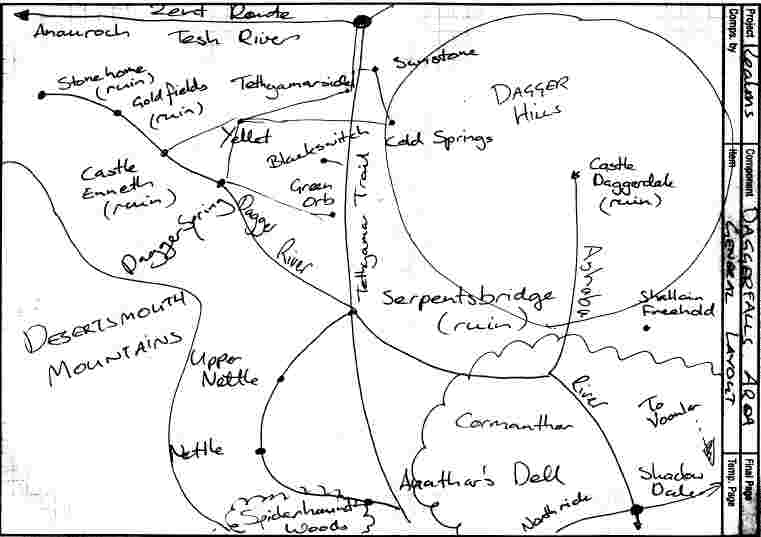 Zent Route
Anauroch
Tesh River
Stonehome
(ruin)
Goldfields
(ruin)
Tethgamarside
Sunstone
DAGGER
HILLS
Yellet
Cold Springs
Blackswitch
Castle
Enneth
(ruin)
Green
Orb
Castle
Daggerdale
(ruin)
DaggerSpring
Dagger
River
Tethyama Trail
Serpentsbridge
(ruin)
Shallain
Freehold
DESERTSMOUTH
MOUNTAINS
Upper
Nettle
River
Cormanthor
To
Voonlar
Nettle
Anathar's Dell
Shadow
Dale
Spiderhaunt
Woods
Northride
Project Realms
Comps. by
Component DAGGERFALLS AREA
Item GENERAL LAYOUT
Final Page
Temp. Page